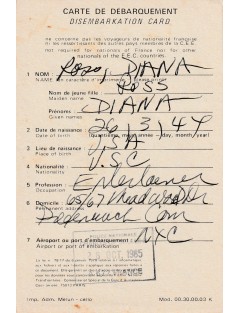 CARTE DE DÉBARQUEMENT
DISEMBARKATION CARD
ne concerne pas les voyageurs de nationalité française
ni les ressortissants des autres pays membres de la C.E.E.
not required for nationals of France nor for other
nationals of the E.E.C. countries.
Ross, DIANA
1 NOM :
NAME (en caractère d'imprimerie - please print)
Nom de jeune fille : ROSS
Maiden name
Prénoms : DIANA
Given names
2 Date de naissance : 26/3/44
Date of birth (quantième, mois, année - day, month/year)
3 Lieu de naissance : USA
Place of birth
4 Nationalité : U.S.C
Nationality
5 Profession : Entertainer
Occupation
6 Domicile :
Permanent address
Conn
7 Aéroport ou port d'embarquement : NYC
Airport or port of embarkation
1985
FRANCE
Imp. Adm. Melun
Mod. 00.30.00.03 K